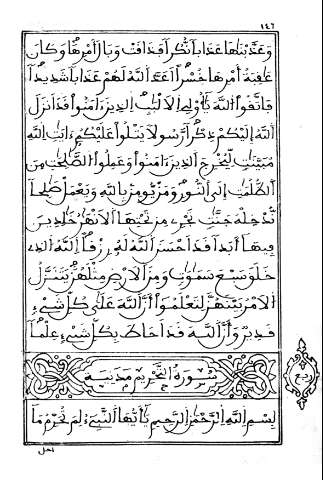 ١٤٦
وعذبنها عذابا نكرا فذاقت وبال أمرها وكان
عقبة أمرها خسرا أعد الله لهم عذابا شديدا
فاتقوا الله يأولي الألبب الذين ءامنوا قد أنزل
الله إليكم ذكرا رسولا يتلوا عليكم ءايت الله
مبينت ليخرج الذين ءامنوا وعملوا الصلحت من
الظلمت إلى النور ومن يومن بالله ويعمل صلحا
ندخله جنت تجري من تحتها الأنهر خلدين
فيها أبدا قد أحسن الله له رزقا الله الذي
خلق سبع سموت ومن الأرض مثلهن يتنزل
الأمر بينهن لتعلموا أن الله على كل شيء
قدير وأن الله قد أحاط بكل شيء علما
سورة التحريم مدنية
ربع
بسم الله الرحمن الرحيم يأيها النبيء لم تحرم ما
أحل